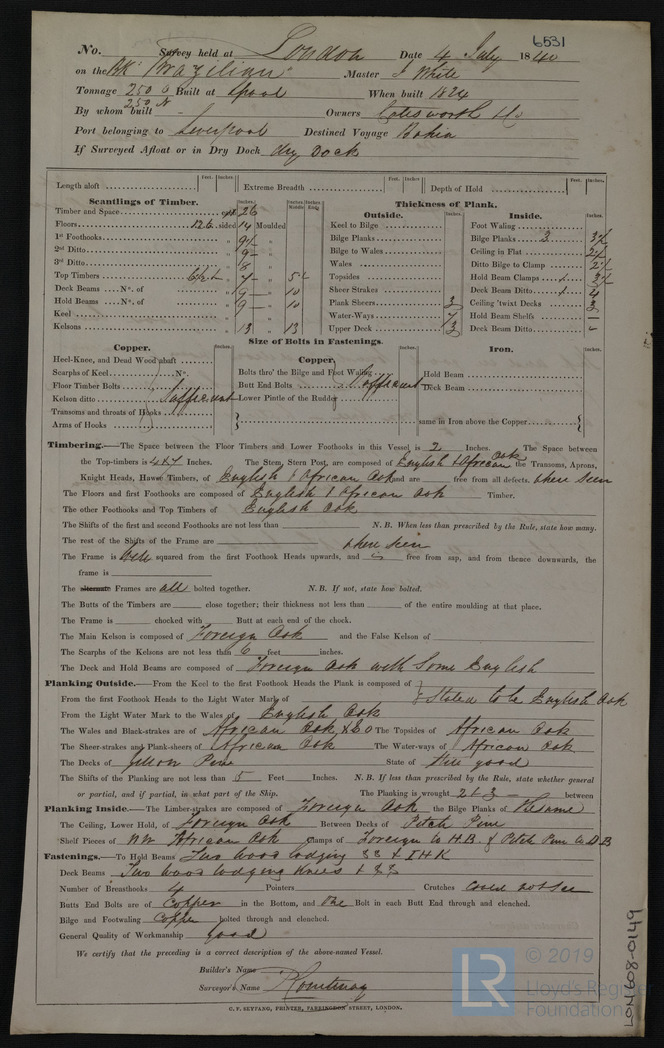 6531
No. Survey held at London Date 4 July 1840
on the Bk Brazilian Master J White
Tonnage 250 O Built at Lpool When built 1824
250 N
By whom built - Owners Colesworth & Co
Port belonging to Liverpool Destined Voyage Bahia
If Surveyed Afloat or in Dry Dock dry Dock
Length aloft Feet. Inches. Extreme Breadth Feet. Inches. Depth of Hold Feet. Inches.
Scantlings of Timber. Inches. Inches Middle Inches Ends Thickness of Plank.
Outside. Inches. Inside. Inches.
Timber and Space 26 Keel to Bilge Foot Waling
Floors sided 14 Moulded Bilge Planks Bilge Planks 3
1st Foothooks Bilge to Wales Ceiling in Flat
2nd Ditto 9 Wales Ditto Bilge to Clamp
3rd Ditto 8 Topsides Hold Beam Clamps
Top Timbers Sheer Strakes Deck Beam Ditto 4
Deck Beams No. of 9 10 Plank Sheers 3 Ceiling 'twixt Decks 3
Hold Beams No. of 9 10 Water-Ways Hold Beam Shelfs
Keel Upper Deck 3 Deck Beam Ditto
Kelsons 13 13
Size of Bolts in Fastenings.
Copper. Inches. Copper. Inches. Iron. Inches.
Heel-Knee, and Dead Wood abaft
Scarphs of Keel No. Bolts thro' the Bilge and Foot Waling Hold Beam
Floor Timber Bolts Butt End Bolts Sufficient Deck Beam
Kelson ditto Sufficient Lower Pintle of the Rudder
Transoms and throats of Hooks
Arms of Hooks same in Iron above the Copper
Timbering.—The Space between the Floor Timbers and Lower Foothooks in this Vessel is 2 Inches. The Space between
the Top-timbers is 4 x 7 Inches. The Stem, Stern Post, are composed of English & African Oak the Transoms, Aprons,
Knight Heads, Hawse Timbers, of English & African Oak and are free from all defects. where seen
The Floors and first Foothooks are composed of English & African Oak Timber.
The other Foothooks and Top Timbers of English Oak
The Shifts of the first and second Foothooks are not less than N.B. When less than prescribed by the Rule, state how many.
The rest of the Shifts of the Frame are where seen
The Frame is Well squared from the first Foothook Heads upwards, and is free from sap, and from thence downwards, the
frame is
The alternate Frames are all bolted together. N.B. If not, state how bolted.
The Butts of the Timbers are close together; their thickness not less than of the entire moulding at that place.
The Frame is chocked with Butt at each end of the chock.
The Main Kelson is composed of Foreign Oak and the False Kelson of
The Scarphs of the Kelsons are not less than 6 feet inches.
The Deck and Hold Beams are composed of Foreign Oak with some English
Planking Outside.—From the Keel to the first Foothook Heads the Plank is composed of
From the first Foothook Heads to the Light Water Mark of Stated to be English Oak
From the Light Water Mark to the Wales of English Oak
The Wales and Black-strakes are of African Oak & E O The Topsides of African Oak
The Sheer-strakes and Plank-sheers of African Oak The Water-ways of African Oak
The Decks of Yellow Pine State of Hree good
The Shifts of the Planking are not less than 5 Feet Inches. N.B. If less than prescribed by the Rule, state whether general
or partial, and if partial, in what part of the Ship. The Planking is wrought 2 & 3 between
Planking Inside.—The Limber-strakes are composed of Foreign Oak the Bilge Planks of the same
The Ceiling, Lower Hold, of Foreign Oak Between Decks of Pitch Pine
Shelf Pieces of African Oak Clamps of Foreign to H.B. & Pitch Pine to D B
Fastenings.—To Hold Beams Two wood lodging
Deck Beams Two wood lodging knees
Number of Breasthooks 4 Pointers Crutches Could not see
Butts End Bolts are of Copper in the Bottom, and One Bolt in each Butt End through and clenched.
Bilge and Footwaling Copper bolted through and clenched.
General Quality of Workmanship good
We certify that the preceding is a correct description of the above-named Vessel.
Builder's Name
Surveyor's Name P Courtenay
C. F. SEYFANG, PRINTER, FARRINGDON STREET, LONDON.
© 2019
LR Lloyd's Register
Foundation
LON608-0149